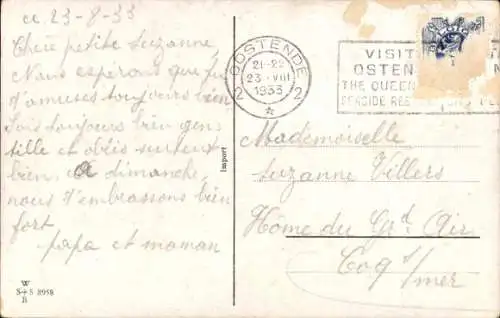 ce 23-8-33
Chère petite Suzanne,
Nous espérons que tu
t'amuses toujours bien
Sois toujours bien gen
tille et obéis surtout
bien. A dimanche,
nous t'embrassons bien
fort
papa et maman
W
S+S 8958
B
Import
OOSTENDE
21-22
23-VIII
1933
2 2
VISIT
OSTEN
THE QUEEN
SEASIDE RES
Mademoiselle
Suzanne Villers
Home du Gd Air
Coq s/mer